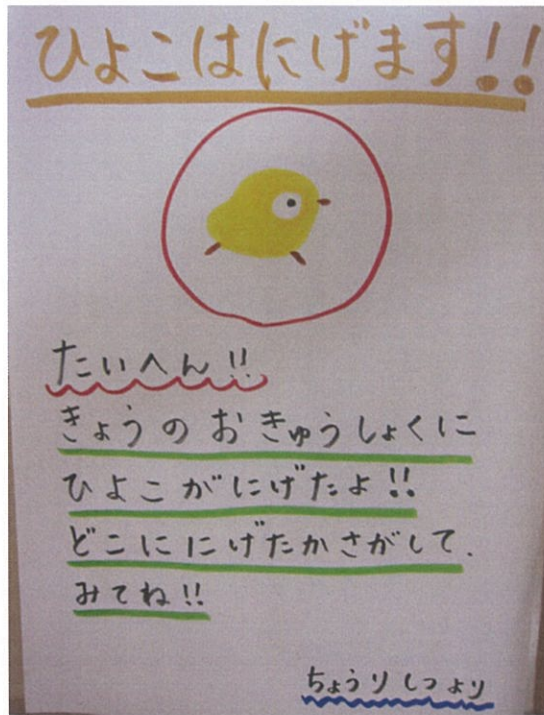 ひよこはにげます!!
たいへん!!
きょうのおきゅうしょくに
ひよこがにげたよ!!
どこににげたかさがして、
みてね!!
ちょうりしつより